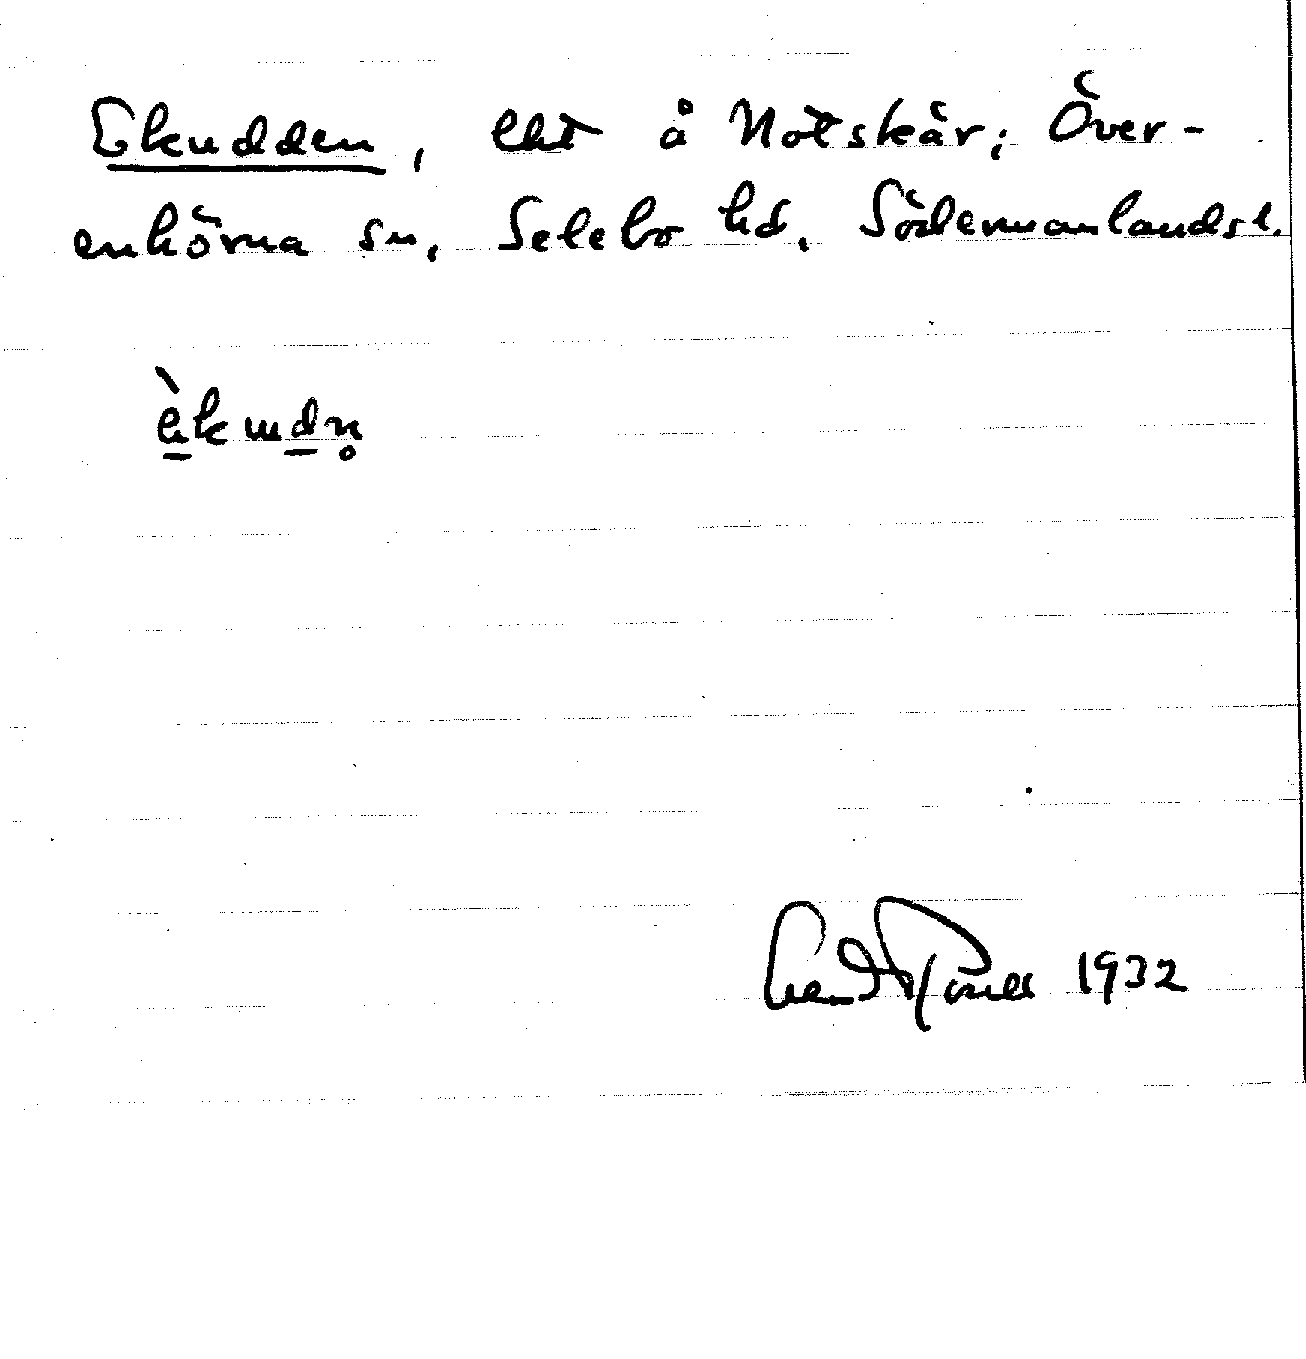 Ekudden, lht å Notskär; Över-
enhörna sn, Selebo hd. Södermanlandsl.
èkɯdn̥
1932